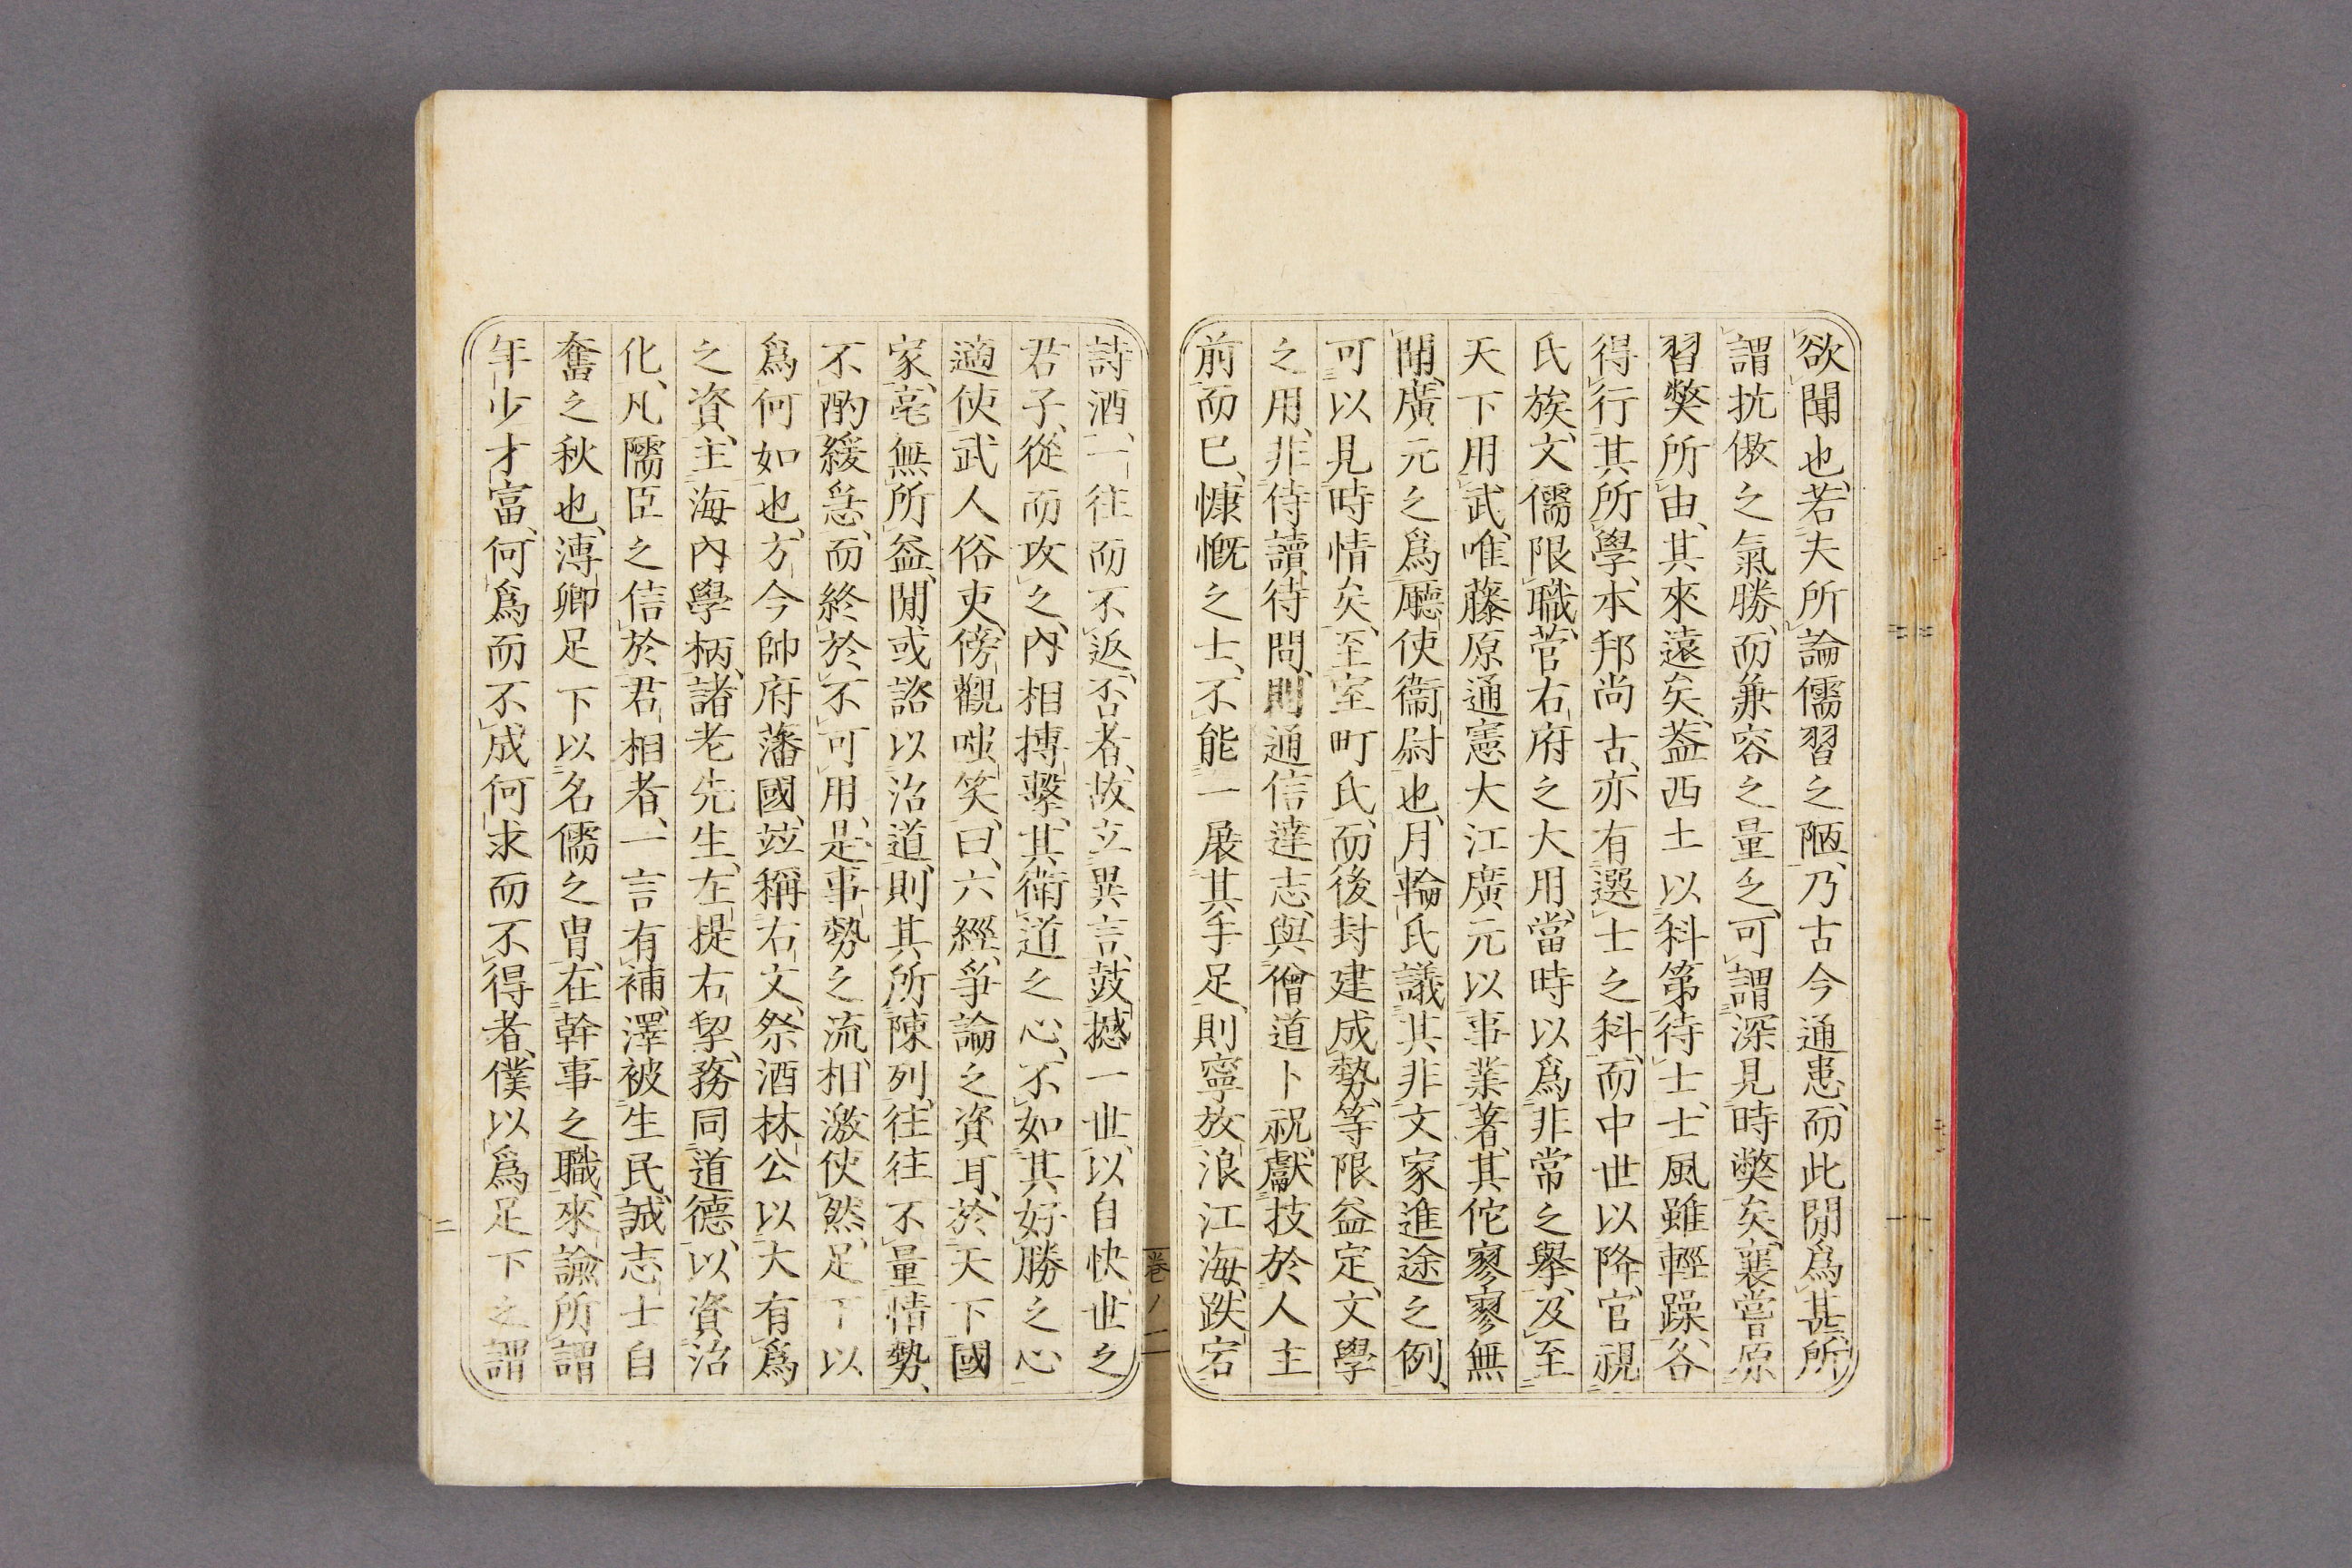 欲聞也、若夫所論儒習之陋、乃古今通患、而此間爲甚、所
謂抗傲之氣勝、而兼容之量乏、可謂深見時弊矣、襄嘗原
習弊所由、其來遠矣、葢西土以科第待士、士風雖輕躁、各
得行其所學、本邦尚古、亦有選士之科、而中世以降、官視
氏族、文儒限職、菅右府之大用、當時以爲非常之擧、及至
天下用武、唯藤原通憲大江廣元以事業著、其佗寥寥無
聞、廣元之爲廳使衞尉也、月輪氏議其非文家進途之例、
可以見時情矣、至室町氏、而後封建成勢、等限益定、文學
之用、非待讀待問、則通信達志、與僧道卜祝、獻技於人主
前而已、慷慨之士、不能一展其手足、則寧放浪江海、跌宕
詩酒、一往而不返、否者、故立異言、鼓撼一世、以自快、世之
君子、從而攻之、內相搏擊、其衞道之心、不如其好勝之心
適使武人俗吏、傍觀嗤笑、曰、六經、爭論之資耳、於天下國
家、毫無所益、閒或諮以治道、則其所陳列、往往不量情勢、
不酌緩急、而終於不可用、是事勢之流、相激使然、足下以
爲何如也、方今帥府藩國、竝稱右文、祭酒林公以大有爲
之資、主海內學柄、諸老先生、左提右挈、務同道德、以資治
化、凡儒臣之信於君相者、一言有補、澤被生民、誠志士自
奮之秋也、溥卿足下以名儒之冑、在幹事之職、來諭所謂
年少才富、何爲而不成何求而不得者、僕以爲足下之謂
卷八
二
二